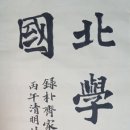 北學
國
錄朴齊家
丙午清明